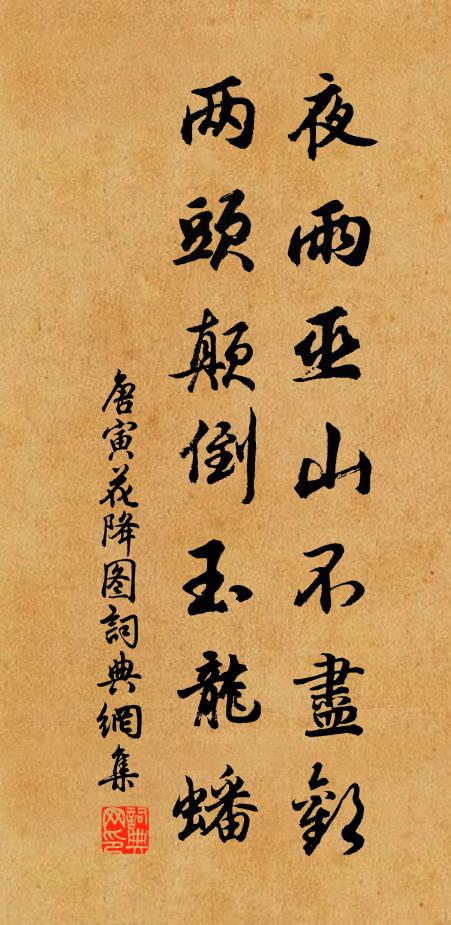 夜雨巫山不盡歡
两頭顛倒玉龍蟠
唐寅花降图詞典網集
詞典
网印